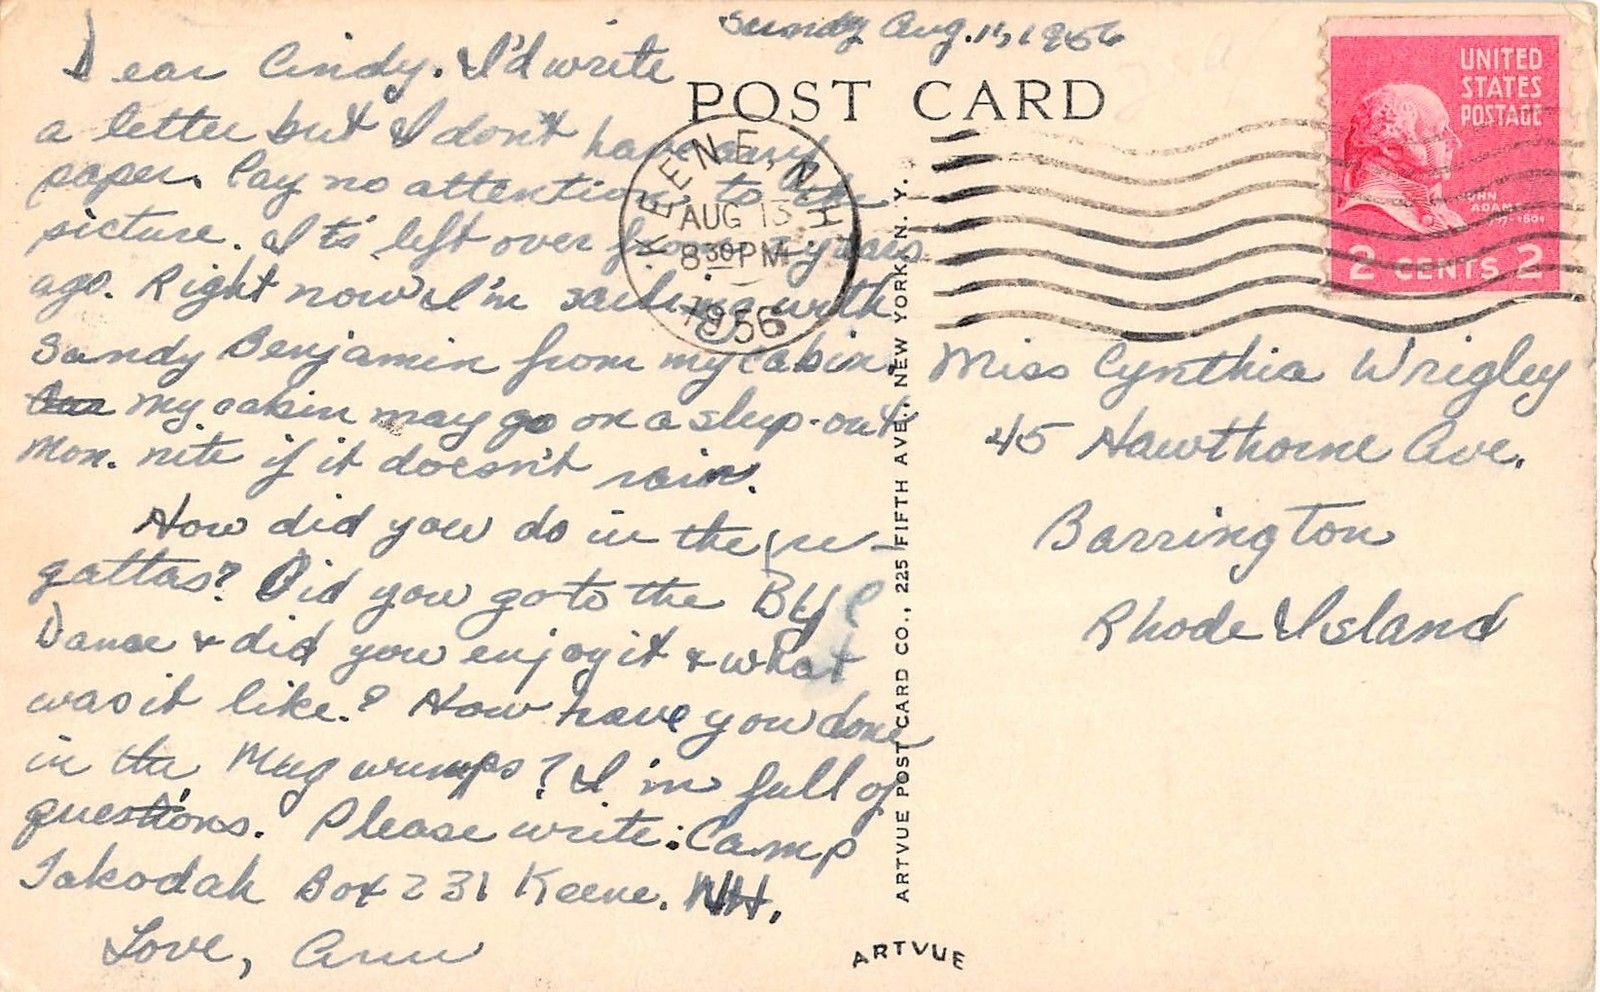 Sunday Aug. 11, 1956
Dear Cindy. I'd write
a letter but I don't have any
paper. Pay no attention to the
picture. It's left over from years
ago. Right now I'm sailing with
Sandy Benjamin from my cabin.
My cabin may go on a sleep-out
Mon. nite if it doesn't rain.
How did you do in the re-
gattas? Did you go to the BYC
Dance & did you enjoy it & what
was it like? How have you done
in the Mugwumps? I'm full of
questions. Please write: Camp
Takodah Box 231 Keene. NH.
Love, Ann
POST CARD
KEENE, N.H.
AUG 13
8 30 PM
1956
UNITED
STATES
POSTAGE
JOHN
ADAMS
1797-1801
2 CENTS 2
Miss Cynthia Wrigley
45 Hawthorne Ave.
Barrington
Rhode Island
ARTVUE POST CARD CO., 225 FIFTH AVE., NEW YORK, N. Y.
ARTVUE